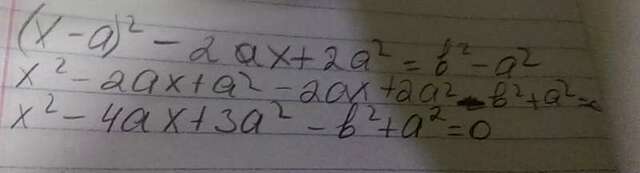 (x-a)² - 2ax + 2a² = b² - a²
x² - 2ax + a² - 2ax + 2a² - b² + a² =
x² - 4ax + 3a² - b² + a² = 0